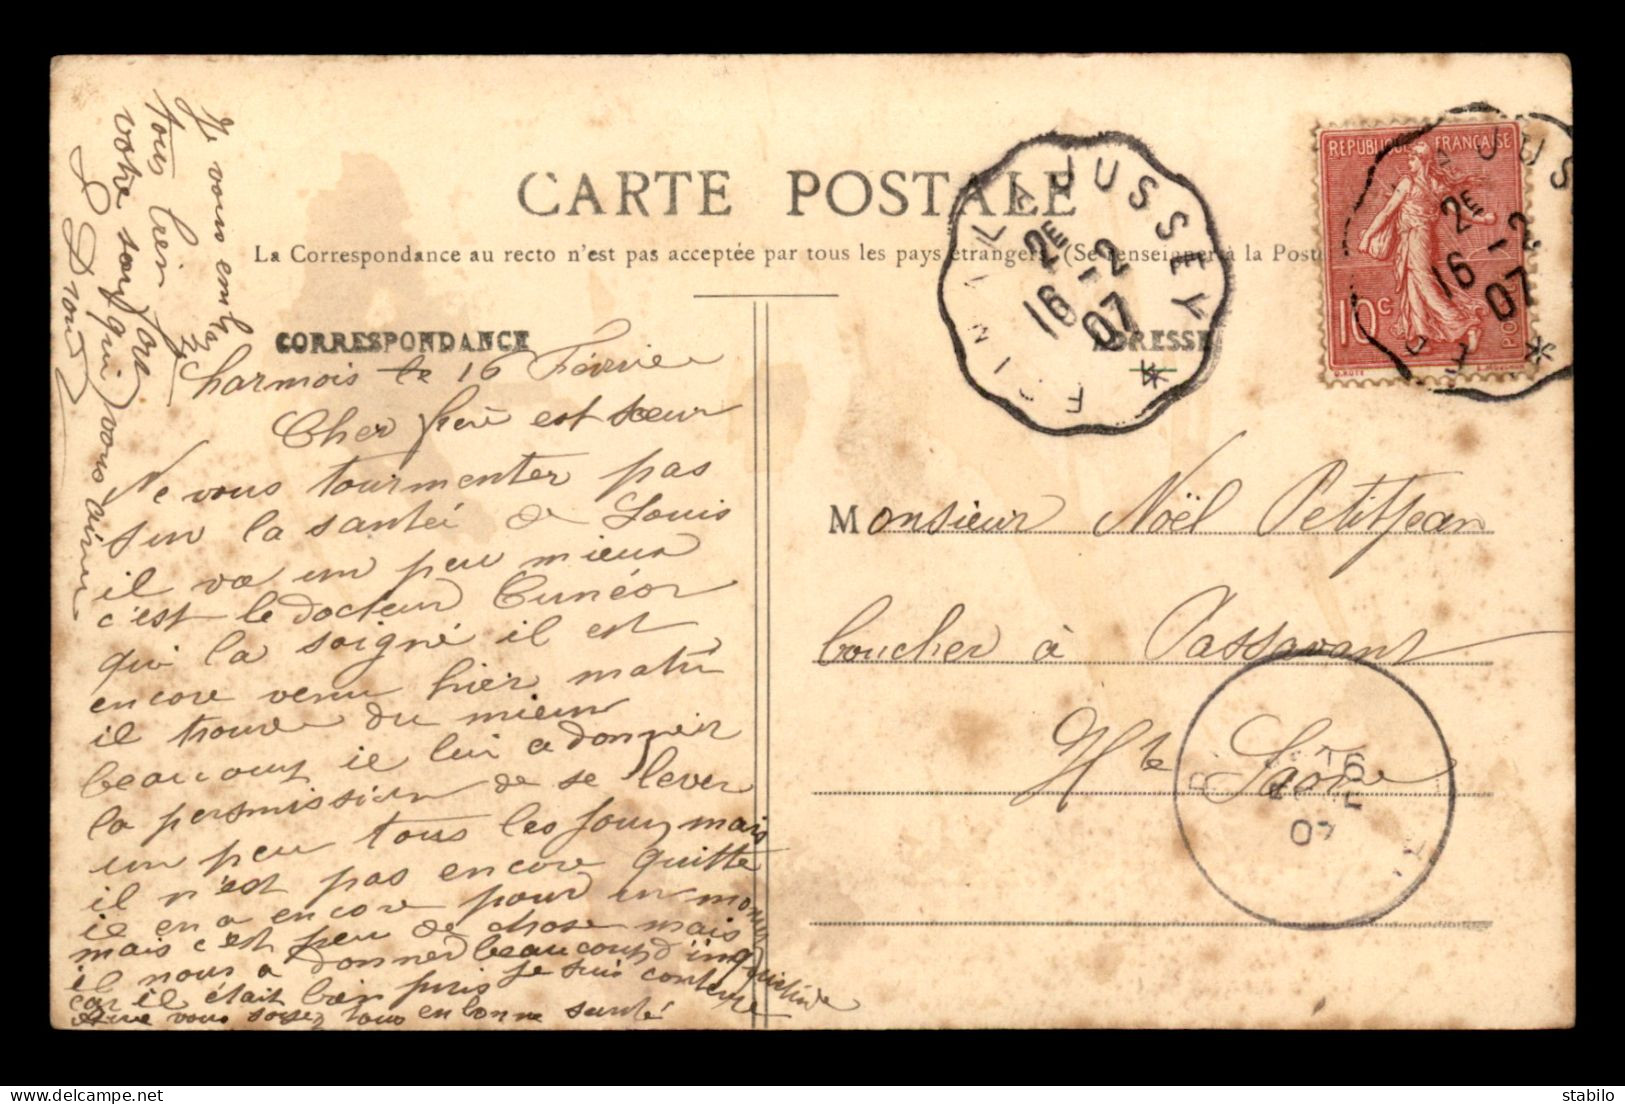 CARTE POSTALE
La Correspondance au recto n'est pas acceptée par tous les pays étrangers. (Se renseigner à la Poste
CORRESPONDANCE
ADRESSE
Charmois le 16 Février
Cher frère est sœur
Ne vous tourmenter pas
sur la santéi de Louis
il va un peu mieux
c'est le docteur Cunéor
qui la soigné il est
encore venu hier matin
il trouve du mieux
beaucoup il lui a donner
la permission de se lever
un peu tous les jour mais
il n'est pas encore quitte
il en a encore pour un moment
mais c'est peu de chose mais
il nous a donner beaucoup d'inquiétude
car il était bien pris je suis contente
que vous soyez tous en bonne santé
Je vous embra
tous bien fort
votre sœur qui vous aime
L Drouo
Monsieur Noël Petitjean
boucher à Passavant
Hte Saône
JUSSEY
2E
16 - 2
07
REPUBLIQUE FRANÇAISE
10c
POS
O.ROTY
JUS
2E
16 - 2
07
16
07
stabilo